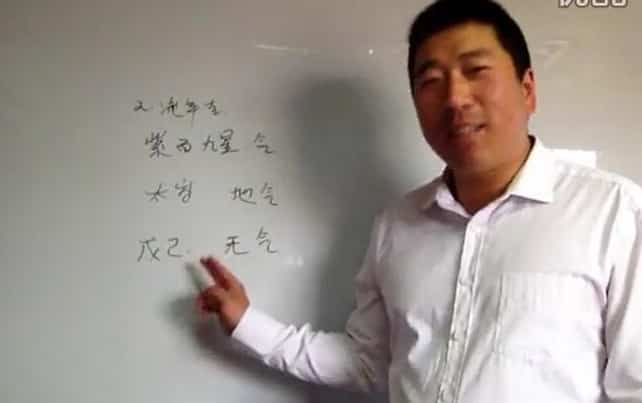 2 流年
紫白九星 气
太岁 地气
戊己 无气